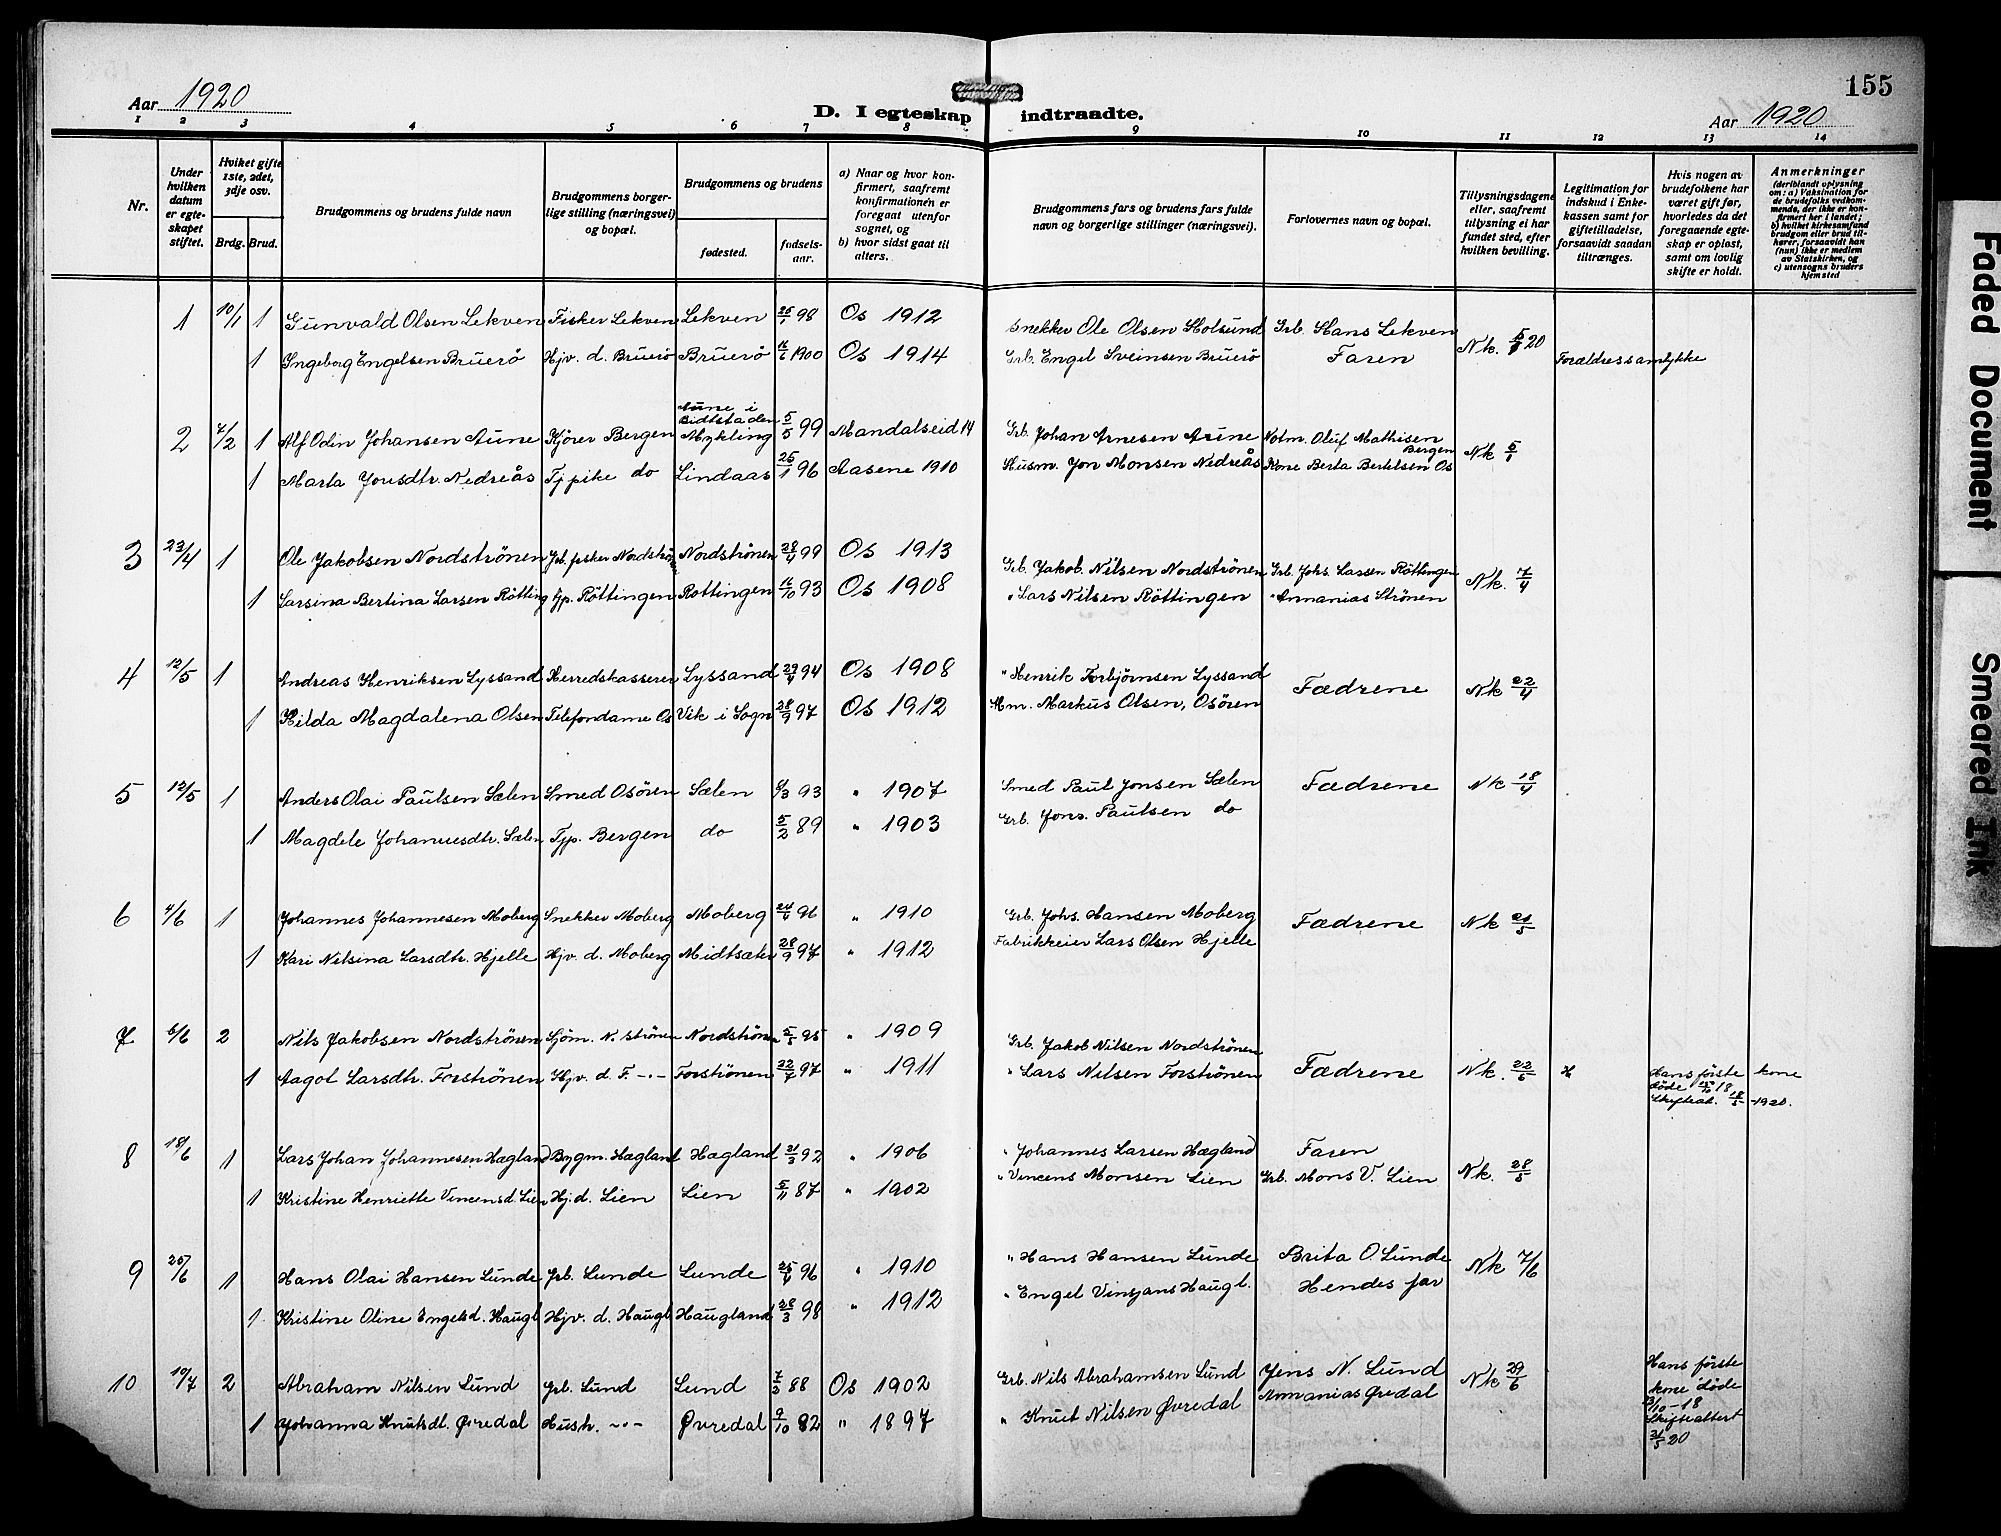 155
Aar 1920
D. I egteskap indtraadte.
Aar 1920
1 2 3 4 5 6 7 8 9 10 11 12 13 14
Nr.
Under hvilken datum er egteskapet stiftet.
Hvilket gifte 1ste, 2det, 3dje osv.
Brdg. Brud.
Brudgommens og brudens fulde navn
Brudgommens borgerlige stilling (næringsvei) og bopæl.
Brudgommens og brudens
fødested.
fødselsaar.
a) Naar og hvor konfirmert, saafremt konfirmationen er foregaat utenfor sognet, og
b) hvor sidst gaat til alters.
Brudgommens fars og brudens fars fulde navn og borgerlige stillinger (næringsvei).
Forlovernes navn og bopæl.
Tillysningsdagene eller, saafremt tillysning ei har fundet sted, efter hvilken bevilling.
Legitimation for indskud i Enkekassen samt for giftetilladelse, forsaavidt saadan tiltrænges.
Hvis nogen av brudefolkene har været gift før, hvorledes da det foregaaende egteskap er opløst, samt om lovlig skifte er holdt.
Anmerkninger (deriblandt oplysning om: a) Vaksination for de brudefolks vedkommende, der ikke er konfirmert her i landet; b) hvilket kirkesamfund brudgom eller brud tilhører, forsaavidt han (hun) ikke er medlem av Statskirken, og c) utensogns bruders hjemsted
1 10/1 1 Gunvald Olsen Lekven Fisker Lekven Lekven 25/1 98 Os 1912 Snekker Ole Olsen Holsund Grb. Hans Lekven Nk. 5/1 20
1 Ingeborg Engelsen Bruerö Hjv. d. Bruerö Bruerö 1900 Os 1914 Grb. Engel Sveinsen Bruerö Faren Forældres samtykke
2 7/2 1 Alf Odin Johansen Aune Kjörer Bergen Aune i 5/5 99 Mandalseid 14 Grb. Johan Arnesen Aune Kolm. Oluf Mathisen Bergen Nk 5/1
1 Marta Jonsdtr. Nedreås Tj pike do Lindaas 25/1 96 Aasene 1910 Husm. Jon Monsen Nedreås Kone Berta Bertelsen Os
3 23/4 1 Ole Jakobsen Nordströnen Grb. fisker Nordströnen 28/4 99 Os 1913 Grb. Jakob Nilsen Nordströnen Grb. Johs. Larsen Röttingen Nk. 7/4
1 Larsina Bertina Larsen Rötting tjp. Röttingen Rottingen 11/10 93 Os 1908 " Lars Nilsen Röttingen " Annanias Strönen
4 12/5 1 Andreas Henriksen Lyssand Herredskasserer Lyssand 29/4 94 Os 1908 " Henrik Torbjörnsen Lyssand Fædrene Nk 22/4
1 Hilda Magdalena Olsen Telefondame Os Vik i Sogn 28/9 97 Os 1912 Hm. Markus Olsen, Osören
5 12/5 1 Anders Olai Paulsen Sælen Smed Osören Sælen 93 " 1907 Smed Paul Jonsen Sælen Fædrene Nk 18/4
1 Magdele Johannesdtr. Sælen Tjp. Bergen do 5/2 89 " 1903 Grb. Jons. Paulsen do
6 4/6 1 Johannes Johannesen Moberg Snekker Moberg Moberg 24/4 96 " 1910 Grb. Johs. Hansen Moberg Fædrene Nk 21/5
1 Kari Nilsina Larsdtr. Hjelle Hjv. d. Moberg Midtsæter 28/9 97 " 1912 Fabrikkeier Lars Olsen Hjelle
7 6/6 2 Nils Jakobsen Nordströnen Sjöm. N. strönen Nordströnen 5/5 95 " 1909 Grb. Jakob Nilsen Nordströnen Fædrene Nk. 22/5
1 Aagot Larsdtr. Forströnen Hjv. d. F. -"- Forströnen 22/7 97 " 1911 " Lars Nilsen Forströnen Hans förste kone döde 18 Skifteat. 18/5 -1920.
8 18/6 1 Lars Johan Johannesen Hægland Bygm. Hægland Hægland 21/3 92 " 1906 " Johannes Larsen Hægland Faren Nk. 28/5
1 Kristine Henriette Vincensd. Lien Hj. d. Lien Lien 5/11 87 " 1902 " Vincens Monsen Lien Grb. Mons V. Lien
9 20/6 1 Hans Olai Hansen Lunde Grb. Lunde Lunde 25/4 96 " 1910 " Hans Hansen Lunde Brita O Lunde Nk 7/6
1 Kristine Oline Engelsd. Haugl Hjv. d. Haugl Haugland 28/3 98 " 1912 " Engel Vinsjans Haugl. Hendes far
10 10/7 2 Abraham Nilsen Lund Grb. Lund Lund 7/2 88 Os 1902 Grb. Nils Abrahamsen Lund Jens N. Lund Nk 29/6 Hans förste kone döde
1 Johanna Knutsdt. Øvredal Hush. -"- Øvredal 9/10 82 " 1897 " Knut Nilsen Øvredal Annanias Øvredal 13/10-18 Skifteattest 31/5 20
Faded Document
Smeared Ink